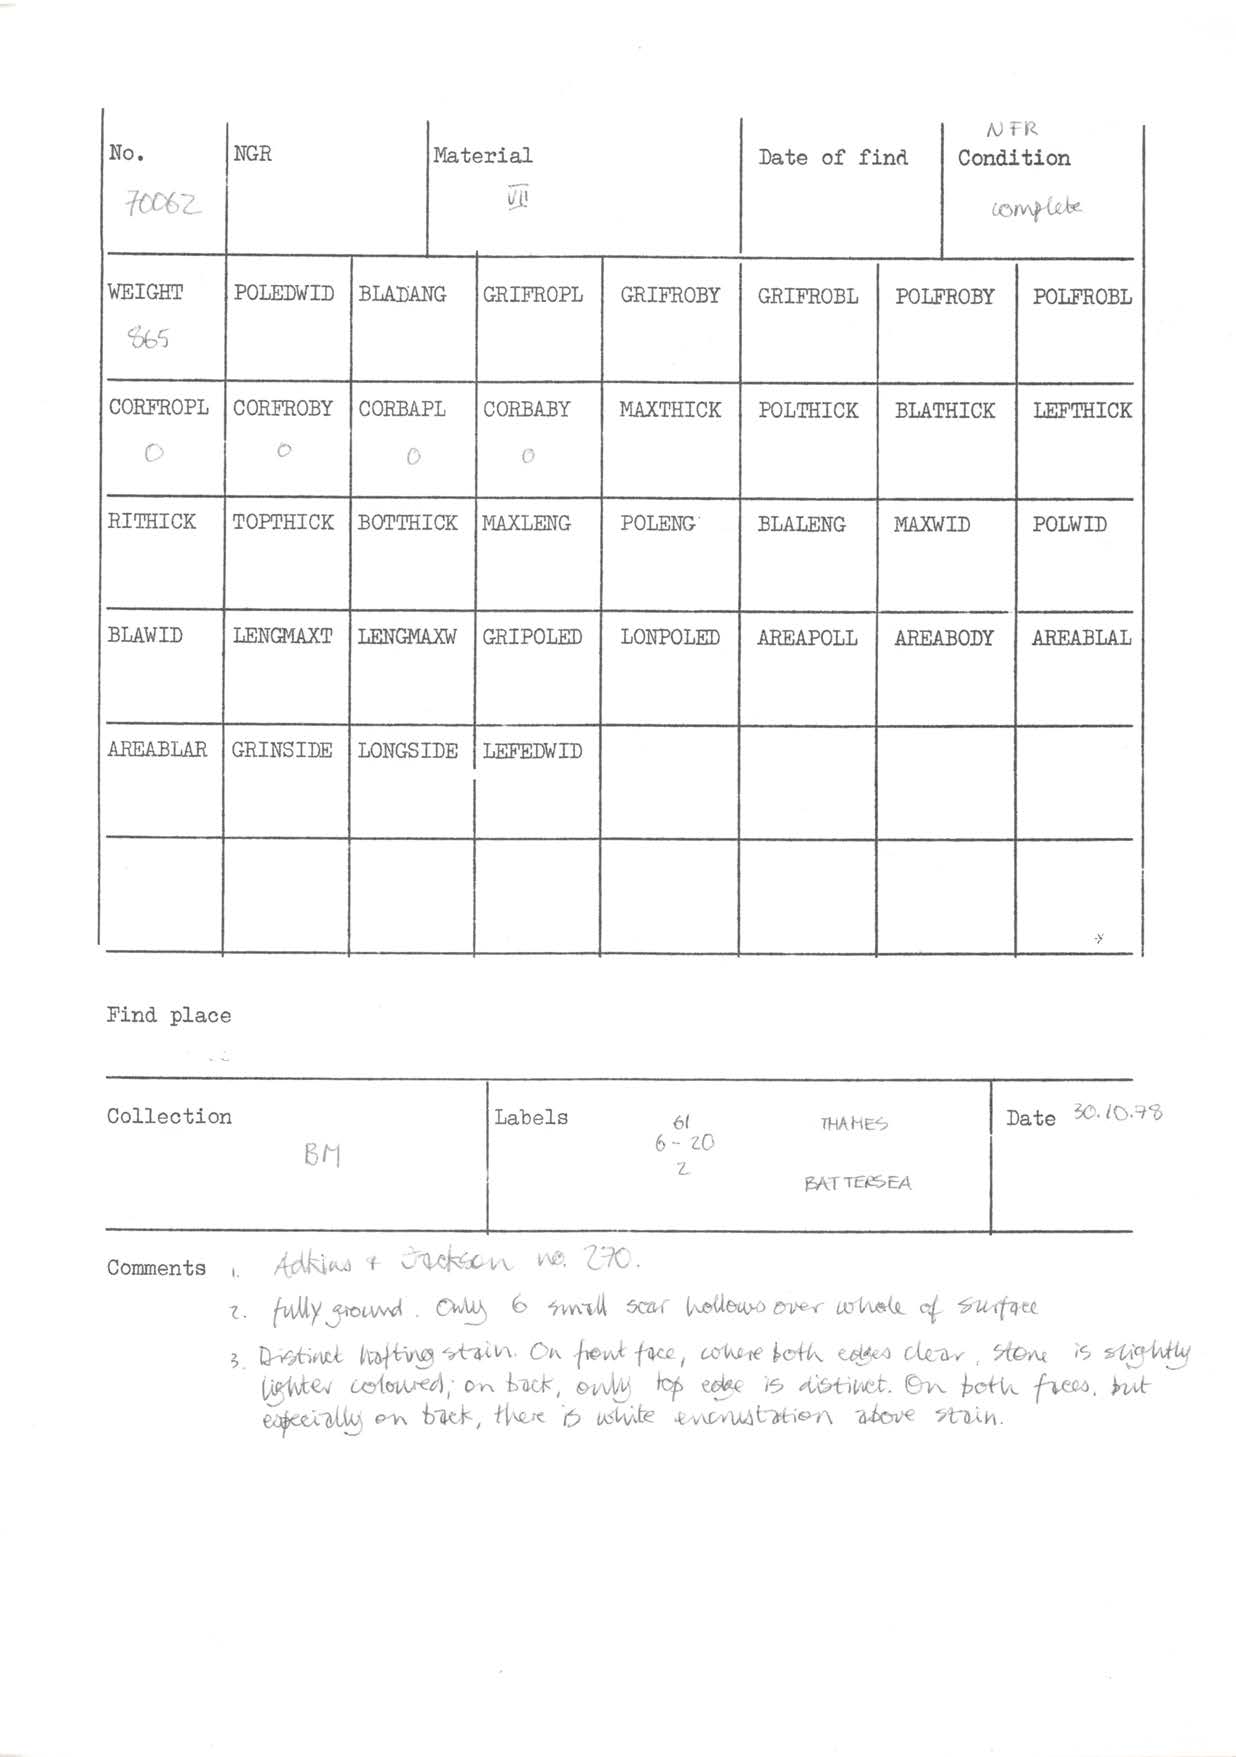 NFR
No. NGR Material Date of find Condition
70062 VII complete
WEIGHT POLEDWID BLADANG GRIFROPL GRIFROBY GRIFROBL POLFROBY POLFROBL
865
CORFROPL CORFROBY CORBAPL CORBABY MAXTHICK POLTHICK BLATHICK LEFTHICK
0 0 0 0
RITHICK TOPTHICK BOTTHICK MAXLENG POLENG BLALENG MAXWID POLWID
BLAWID LENGMAXT LENGMAXW GRIPOLED LONPOLED AREAPOLL AREABODY AREABLAL
AREABLAR GRINSIDE LONGSIDE LEFEDWID
Find place
Collection Labels 61 THAMES Date 30.10.78
BM 6-20
2 BATTERSEA
Comments 1. Adkins + Jackson no. 270.
2. fully ground. Only 6 small scar hollows over whole of surface
3. Distinct hafting stain. On front face, where both edges clear, stone is slightly
lighter coloured; on back, only top edge is distinct. On both faces, but
especially on back, there is white encrustation above stain.